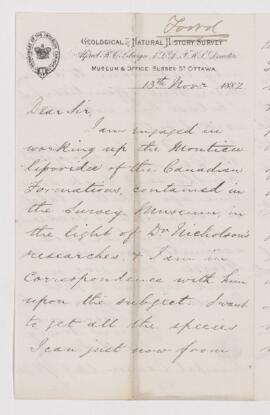 Foord
GEOLOGICAL & NATURAL HISTORY SURVEY
Alfred R. C. Selwyn, L.L.D., F.R.S. Director
MUSEUM & OFFICE SUSSEX ST OTTAWA.
13th Novr 1882
Dear Sir,
I am engaged in
working up the Monticu
liporidæ of the Canadian
Formations, contained in
the Survey Museum, in
the light of Dr Nicholson's
researches, & I am in
correspondence with him
upon the subject. I want
to get all the species
I can just now from